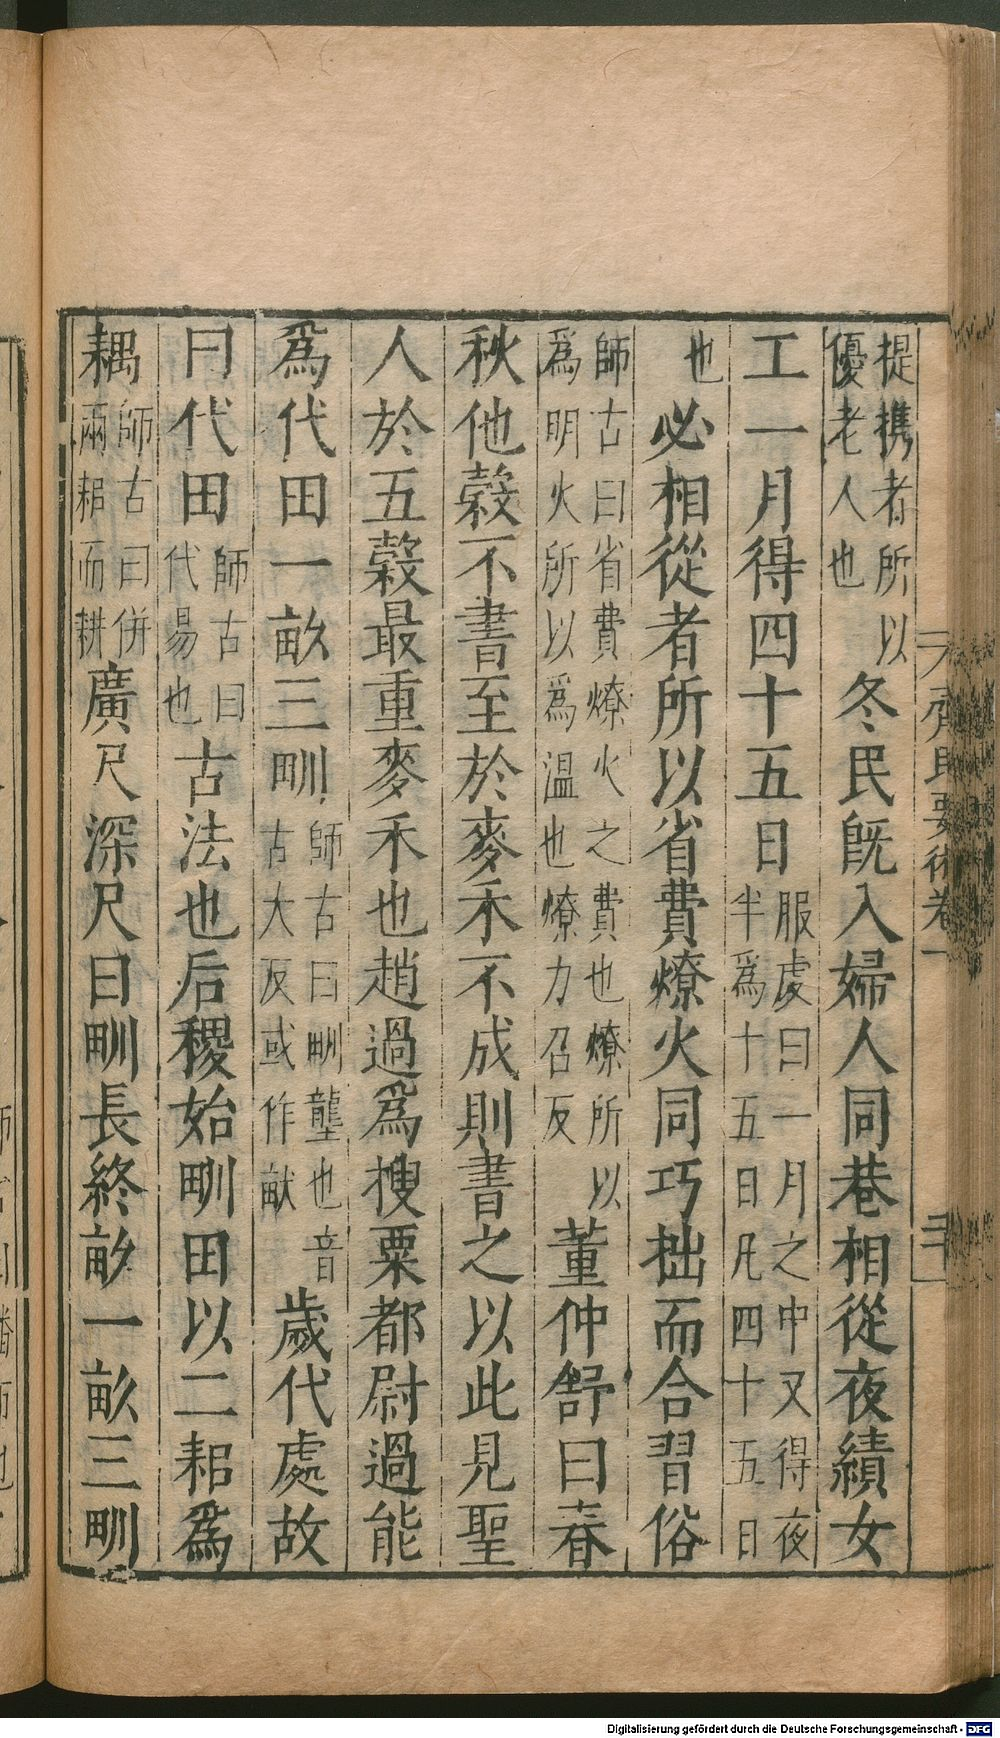 提携者所以優老人也冬民旣入婦人同巷相從夜績女
工一月得四十五日服虔曰一月之中又得夜半爲十五日凡四十五日
也必相從者所以省費燎火同巧拙而合習俗
師古曰省費燎火之費也燎所以爲明火所以爲溫也燎力召反董仲舒曰春
秋他穀不書至於麥禾不成則書之以此見聖
人於五穀最重麥禾也趙過爲搜粟都尉過能
爲代田一畝三甽師古曰甽壟也音古大反或作畎歲代處故
曰代田師古曰代易也古法也后稷始甽田以二耜爲
耦師古曰併兩耜而耕廣尺深尺曰甽長終畝一畝三甽
齊民要術卷一
Digitalisierung gefördert durch die Deutsche Forschungsgemeinschaft - DFG